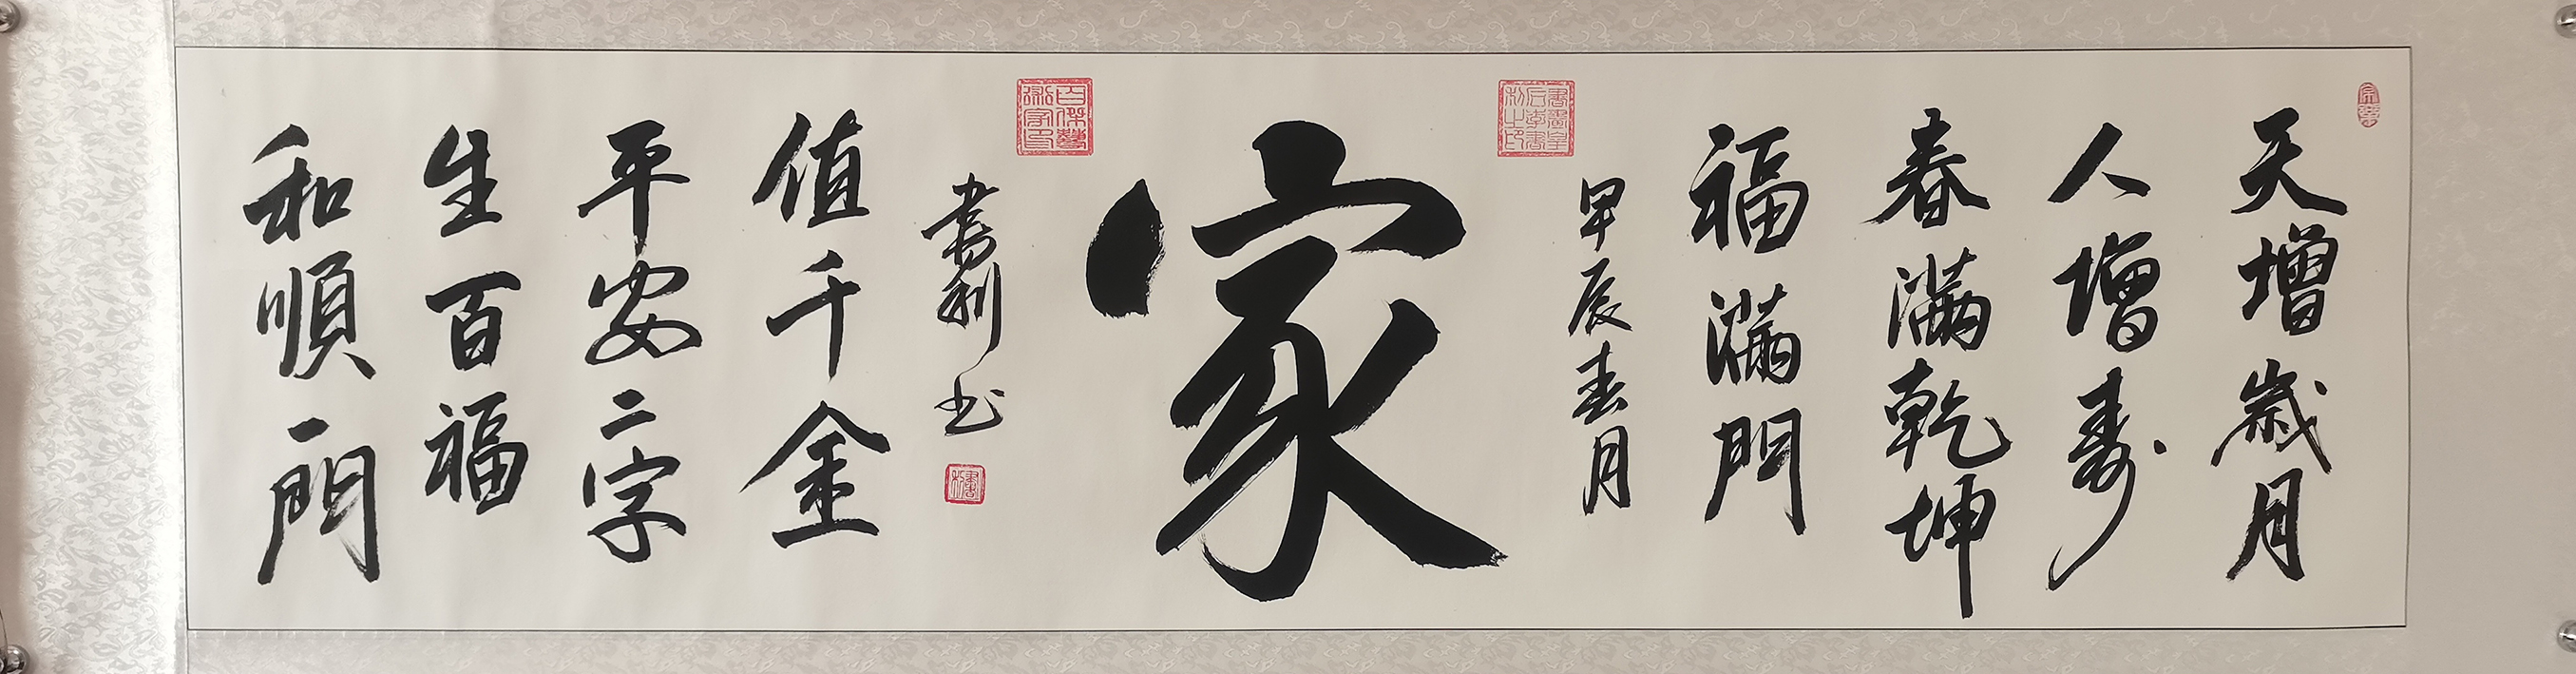 天增歲月
人增壽
春滿乾坤
福滿門
甲辰春月
家
書利书
值千金
平安二字
生百福
和順一門